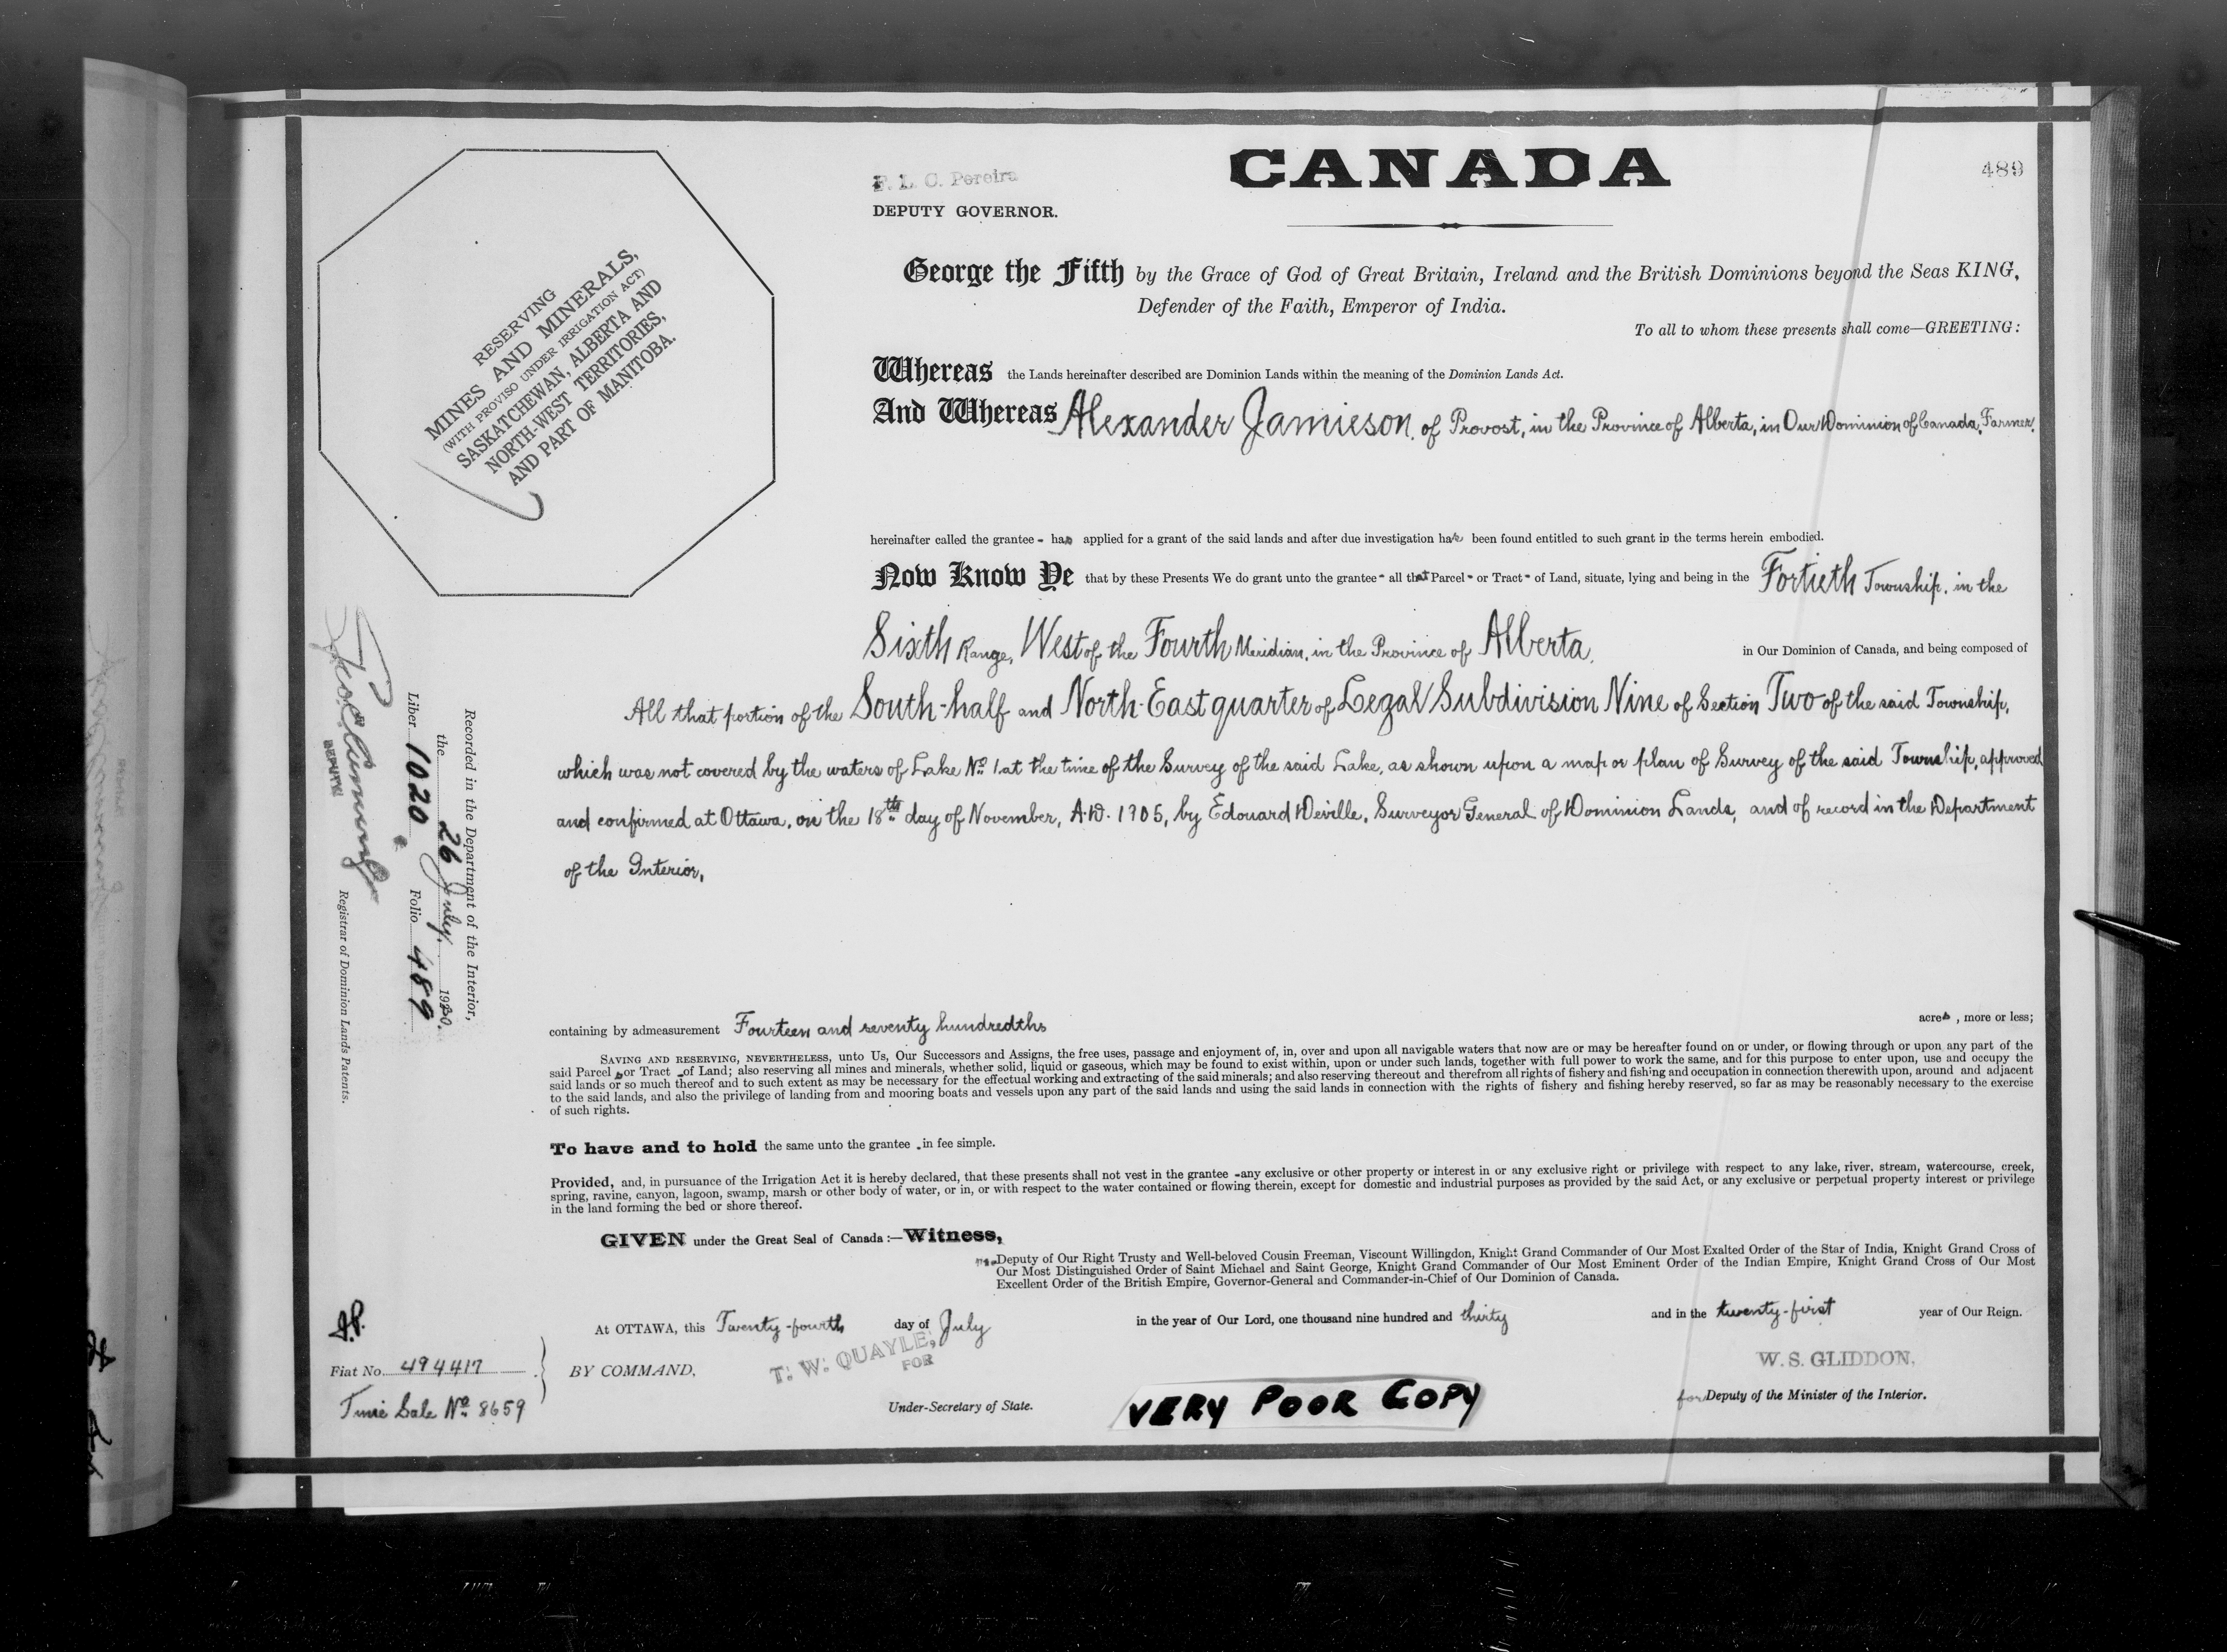 CANADA
489
F. L. C. Pereira
DEPUTY GOVERNOR.
RESERVING
MINES AND MINERALS,
(WITH PROVISO UNDER IRRIGATION ACT)
SASKATCHEWAN, ALBERTA AND
NORTH-WEST TERRITORIES,
AND PART OF MANITOBA.
George the Fifth by the Grace of God of Great Britain, Ireland and the British Dominions beyond the Seas KING,
Defender of the Faith, Emperor of India.
To all to whom these presents shall come—GREETING:
Whereas the Lands hereinafter described are Dominion Lands within the meaning of the Dominion Lands Act.
And Whereas Alexander Jamieson, of Provost, in the Province of Alberta, in Our Dominion of Canada, Farmer,
hereinafter called the grantee - has applied for a grant of the said lands and after due investigation has been found entitled to such grant in the terms herein embodied.
Now Know Ye that by these Presents We do grant unto the grantee - all that Parcel - or Tract - of Land, situate, lying and being in the Fortieth Township, in the
Sixth Range, West of the Fourth Meridian, in the Province of Alberta, in Our Dominion of Canada, and being composed of
All that portion of the South-half and North-East quarter of Legal Subdivision Nine of Section Two of the said Township,
which was not covered by the waters of Lake No. 1. at the time of the Survey of the said Lake, as shown upon a map or plan of Survey of the said Township, approved
and confirmed at Ottawa, on the 18th day of November, A.D. 1905, by Edouard Deville, Surveyor General of Dominion Lands, and of record in the Department
of the Interior,
containing by admeasurement Fourteen and seventy hundredths acres, more or less;
SAVING AND RESERVING, NEVERTHELESS, unto Us, Our Successors and Assigns, the free uses, passage and enjoyment of, in, over and upon all navigable waters that now are or may be hereafter found on or under, or flowing through or upon any part of the
said Parcel - or Tract - of Land; also reserving all mines and minerals, whether solid, liquid or gaseous, which may be found to exist within, upon or under such lands, together with full power to work the same, and for this purpose to enter upon, use and occupy the
said lands or so much thereof and to such extent as may be necessary for the effectual working and extracting of the said minerals; and also reserving thereout and therefrom all rights of fishery and fishing and occupation in connection therewith upon, around and adjacent
to the said lands, and also the privilege of landing from and mooring boats and vessels upon any part of the said lands and using the said lands in connection with the rights of fishery and fishing hereby reserved, so far as may be reasonably necessary to the exercise
of such rights.
To have and to hold the same unto the grantee - in fee simple.
Provided, and, in pursuance of the Irrigation Act it is hereby declared, that these presents shall not vest in the grantee - any exclusive or other property or interest in or any exclusive right or privilege with respect to any lake, river, stream, watercourse, creek,
spring, ravine, canyon, lagoon, swamp, marsh or other body of water, or in, or with respect to the water contained or flowing therein, except for domestic and industrial purposes as provided by the said Act, or any exclusive or perpetual property interest or privilege
in the land forming the bed or shore thereof.
GIVEN under the Great Seal of Canada:—Witness,
Deputy of Our Right Trusty and Well-beloved Cousin Freeman, Viscount Willingdon, Knight Grand Commander of Our Most Exalted Order of the Star of India, Knight Grand Cross of
Our Most Distinguished Order of Saint Michael and Saint George, Knight Grand Commander of Our Most Eminent Order of the Indian Empire, Knight Grand Cross of Our Most
Excellent Order of the British Empire, Governor-General and Commander-in-Chief of Our Dominion of Canada.
At OTTAWA, this Twenty-fourth day of July in the year of Our Lord, one thousand nine hundred and thirty and in the twenty-first year of Our Reign.
Fiat No. 494417
Time Sale No. 8659
BY COMMAND,
T. W. QUAYLE,
FOR
Under-Secretary of State.
VERY POOR COPY
W. S. GLIDDON,
for Deputy of the Minister of the Interior.
Recorded in the Department of the Interior,
the 26 July, 1930.
Liber 1020 Folio 489
DEPUTY
Registrar of Dominion Lands Patents.